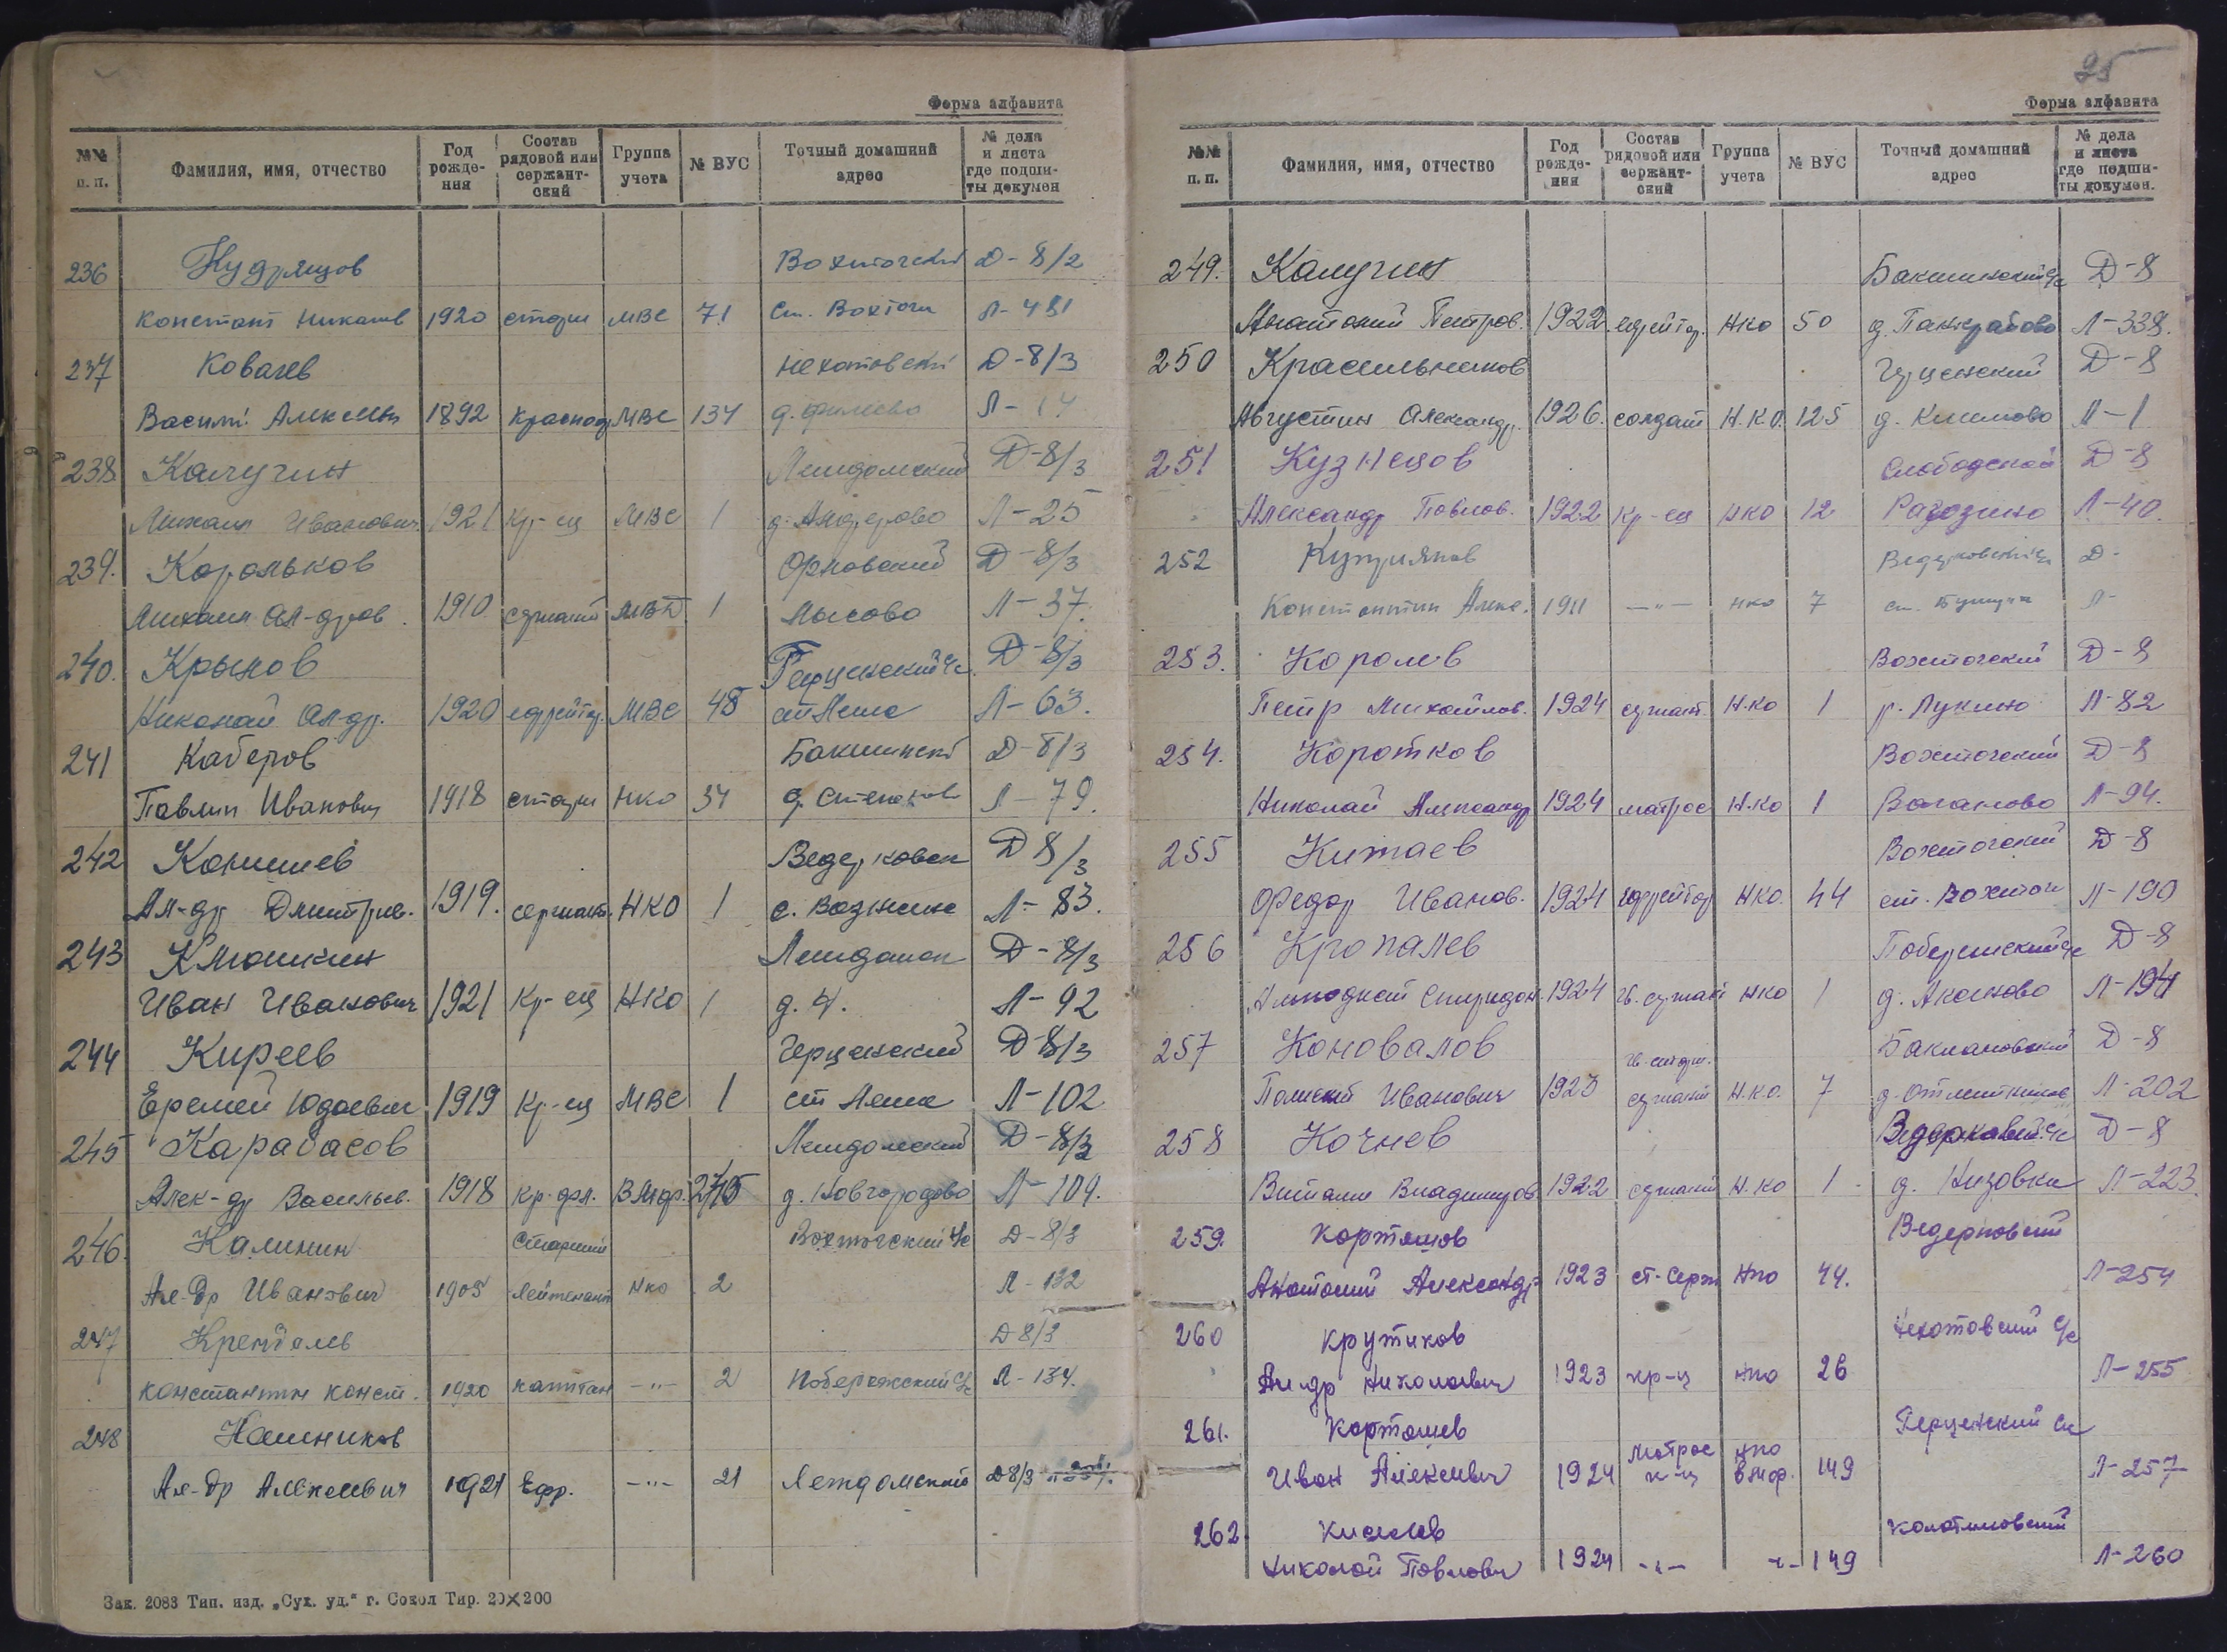 Форма алфавита
№№ п. п. Фамилия, имя, отчество Год рожде-ния Состав рядовой или сержант-ский Группа учета № ВУС Точный домашний адрес № дела и листа где подши-ты докумен
236 Кудрящов Вохтогский Д-8/2
Констант Никол 1920 МВС 71 ст. Вохтога Л-481
237 Ковалев Нехотовский Д-8/3
Василий Алексеев 1892 МВС 134 Л-
238 Калугин Леждомский Д-8/3
Михаил Иванович 1921 Кр-ец МВС 1 Л-25
239. Корольков Д-8/3
Михаил Ал-дров. 1910 сержант 1 Лысово Л-37.
240. Крылов Герценский с/с. Д-8/3
Николай Ал-др. 1920 ефрейтор МВС 48 ст Лежа Л-63.
241 Каберов Бакшинский Д-8/3
Павлин Иванович 1918 НКО 34 Л-79.
242 Конышев Ведерковск Д 8/3
Ал-др Дмитрив. 1919. сержант. НКО 1 Л-83.
243 Клюшкин Лежданск Д-8/3
Иван Иванович 1921 Кр-ец НКО 1 Л-92
244 Киреев Герценский Д-8/3
Еремей 1919 Кр-ец МВС 1 ст Лежа Л-102
245 Карабасов Лежданский Д-8/3
Алек-др Васильев. 1918 д. Новгородово Л-109.
246. Калинин Старший Вохтогский с/с Д-8/3
Ал-др Иванович 1905 лейтенант НКО 2 Л-132
247 Д8/3
Константин Конст. 1920 капитан -"- 2 Побережский с/с Л-134.
248
Ал-др Алексевич 1921 Ефр. -"- 21 Леждомский Д8/3
Зак. 2083 Тип. изд. „Сух. уд." г. Сокол Тир. 20×200
25
Форма алфавита
№№ п. п. Фамилия, имя, отчество Год рожде-ния Состав рядовой или сержант-ский Группа учета № ВУС Точный домашний адрес № дела и листа где подши-ты докумен.
249. Калугин Бакшинский с/с Д-8
Анатолий Петров. 1922 ефрейтор. НКО 50 д. Панкратово Л-338.
250 Красильников Герценский Д-8
Августин Александр. 1926. солдат Н.К.О. 125 д. Климово Л-1
251 Кузнецов Слободской Д-8
Александр Павлов. 1922 Кр-ец НКО 12 Рагозино Л-40.
252 Куприянов Ведерковский с/с Д-
Константин Алекс. 1911 -"- НКО 7 ст. Бушуиха Л-
253. Королев Вохтогский Д-8
Петр Михайлов. 1924 сержант. Н.КО 1 Лукино Л-82
254. Коротков Вохтогский Д-8
Николай Александр 1924 матрос Н.КО 1 Ваганово Л-94.
255 Китаев Вохтогский Д-8
Федор Иванов. 1924 ефрейтор НКО. 44 ст. Вохтога Л-190
256 Кропалев Побережский с/с Д-8
Спиридон. 1924 гв. сержант НКО 1 д. Аксеново Л-194
257 Коновалов гв. старш. Баклановский Д-8
Иванович 1923 сержант Н.К.О. 7 Л-202
258 Кочнев Ведерковский с/с Д-8
Виталий Владимиров 1922 сержант Н.КО 1 д. Низовка Л-223.
259. Карташов Ведерковский
Анатолий Александр. 1923 ст-серж НКО 44. Л-254
260 Крутиков Нехотовский с/с
Ал-др Николаевич 1923 кр-ц НКО 26 Л-255
261. Карташев Герценский с/с
Иван Алексевич 1924 матрос к-ц НКО ВМФ. 149 Л-257
262. Киселев
Николай Павлович 1924 -"- -"- 149 Л-260